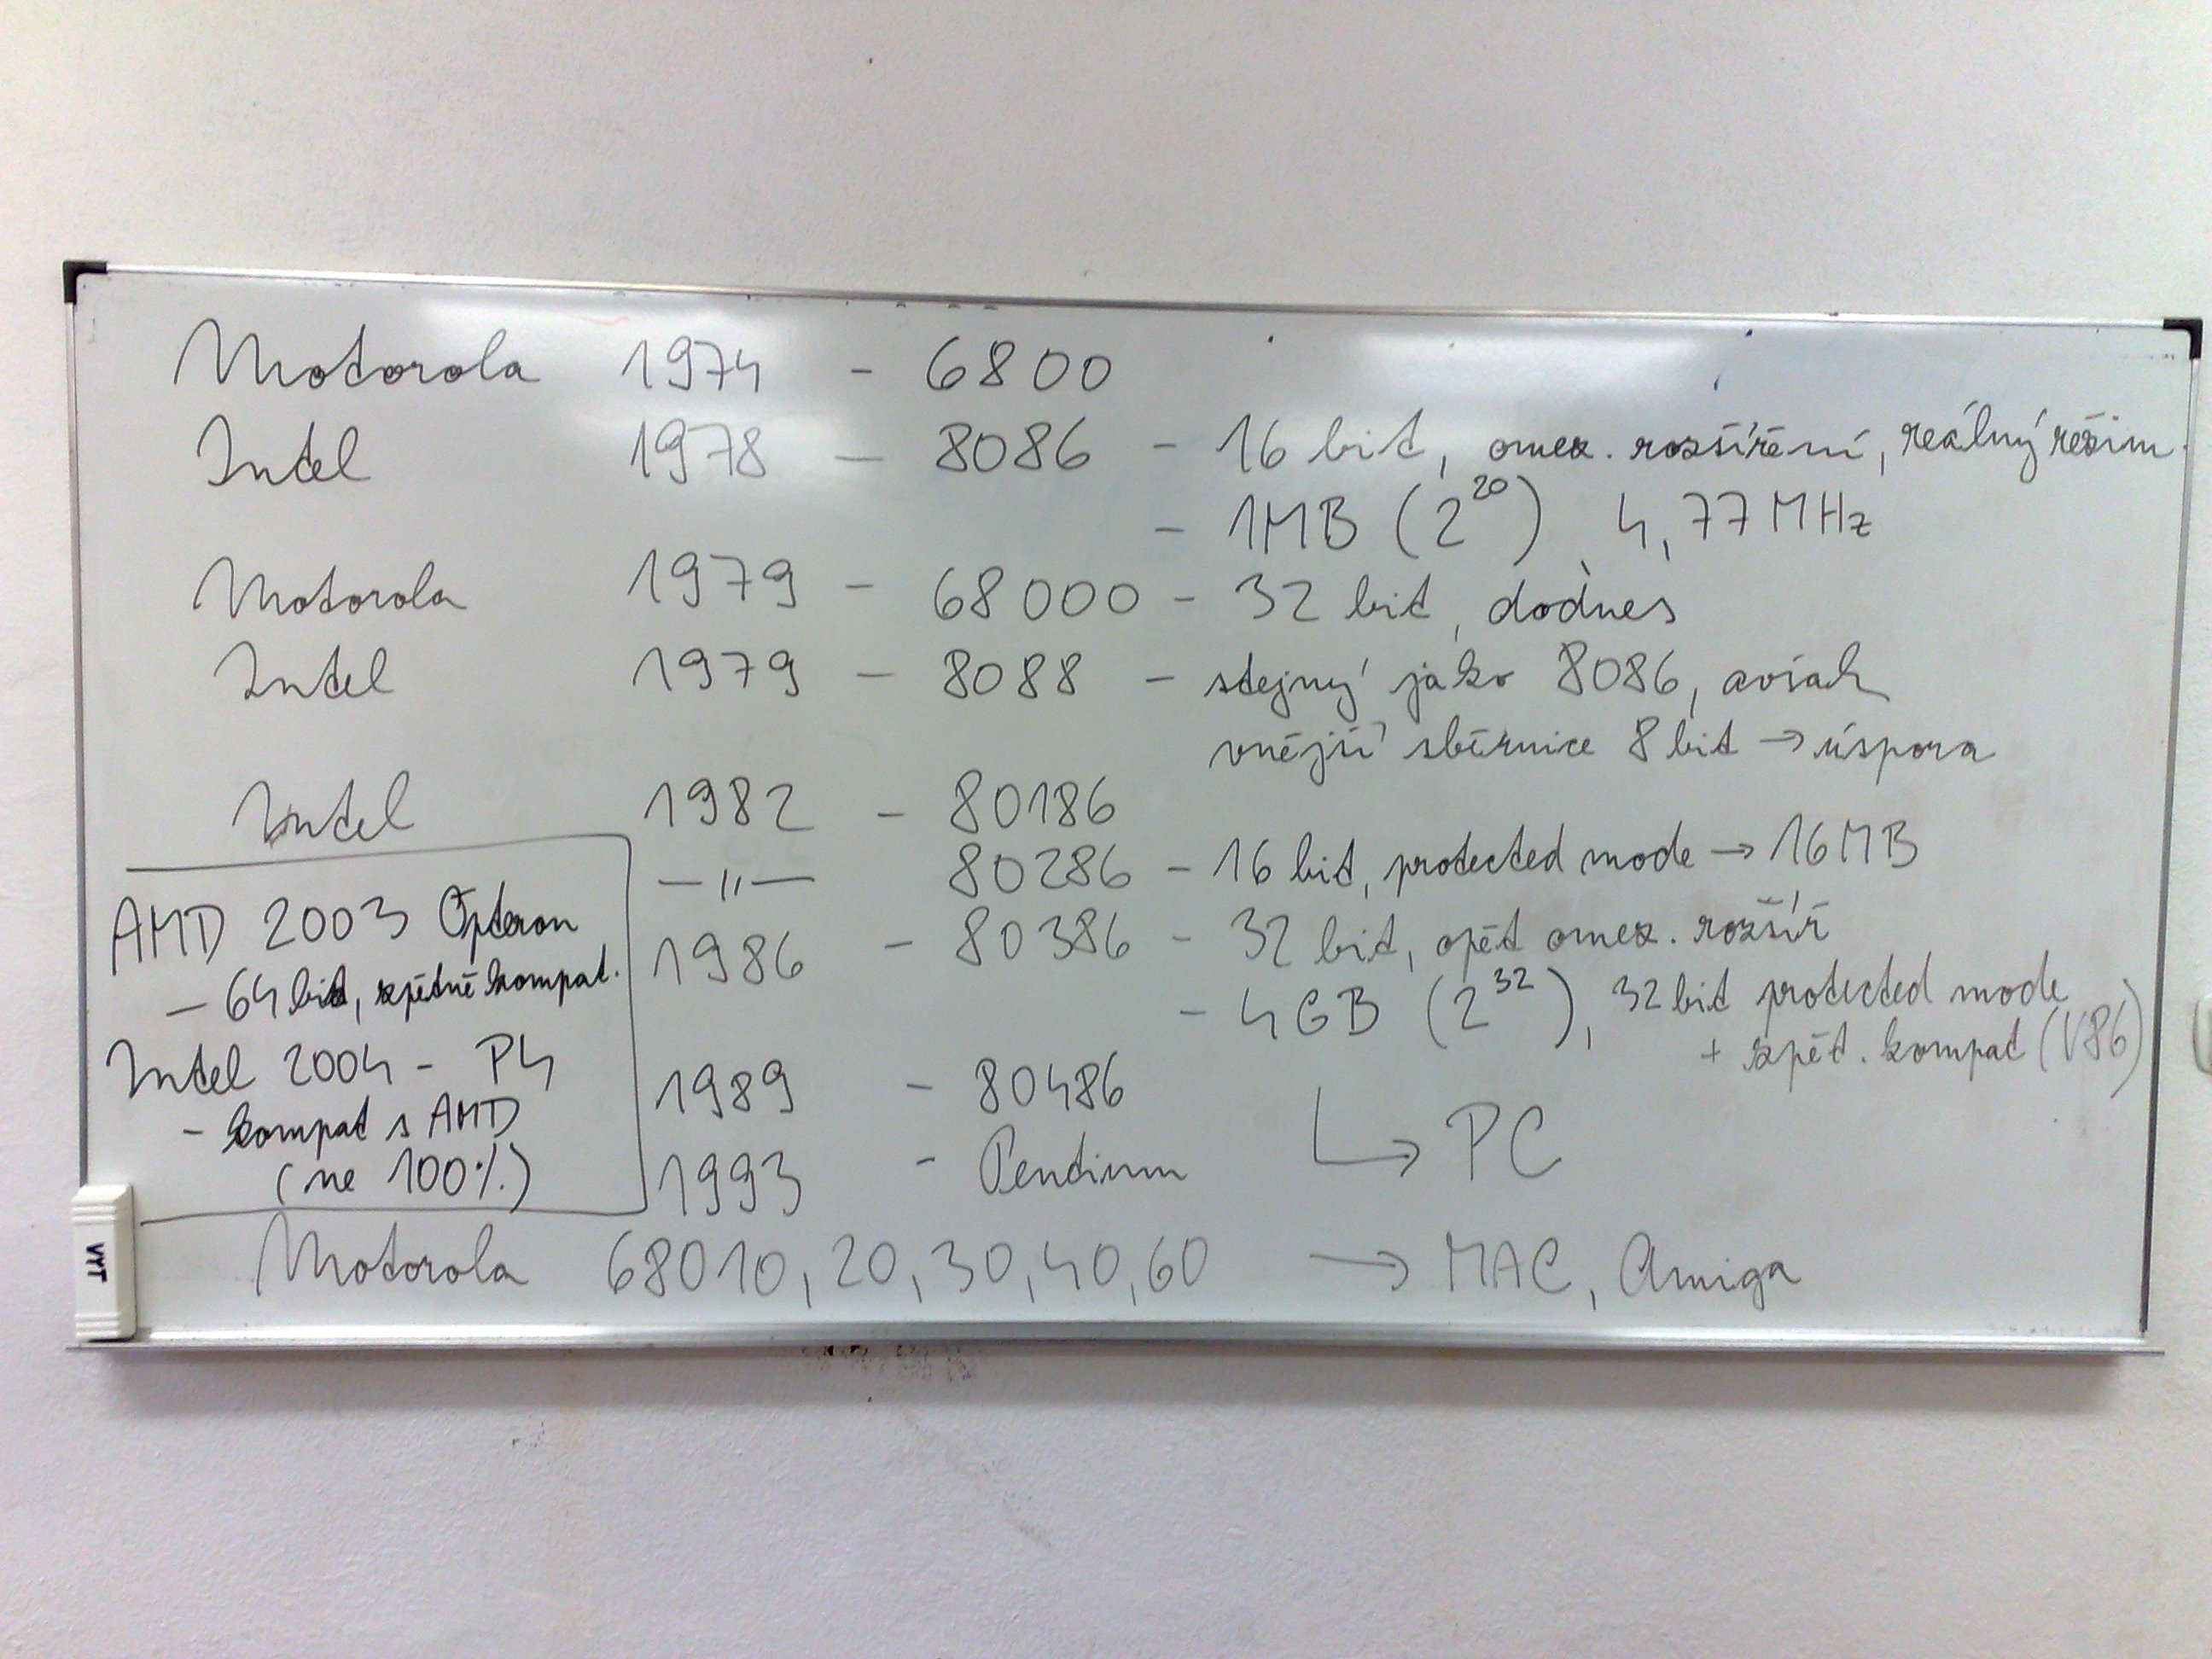 Motorola 1974 - 6800
Intel 1978 - 8086 - 16 bit, omez. rozšíření, reálný režim.
- 1MB (2^20) 4,77 MHz
Motorola 1979 - 68000 - 32 bit, dodnes
Intel 1979 - 8088 - stejný jako 8086, avšak
vnější sběrnice 8 bit → úspora
Intel 1982 - 80186
—"— 80286 - 16 bit, protected mode → 16MB
1986 - 80386 - 32 bit, opět omez. rozšíř
- 4GB (2^32), 32 bit protected mode
+ zpět. kompat (V86)
1989 - 80486
1993 - Pentium
↳ PC
AMD 2003 Opteron
- 64 bit, zpětně kompat.
Intel 2004 - P4
- kompat s AMD
(ne 100%)
Motorola 68010, 20, 30, 40, 60 → MAC, Amiga
VYT